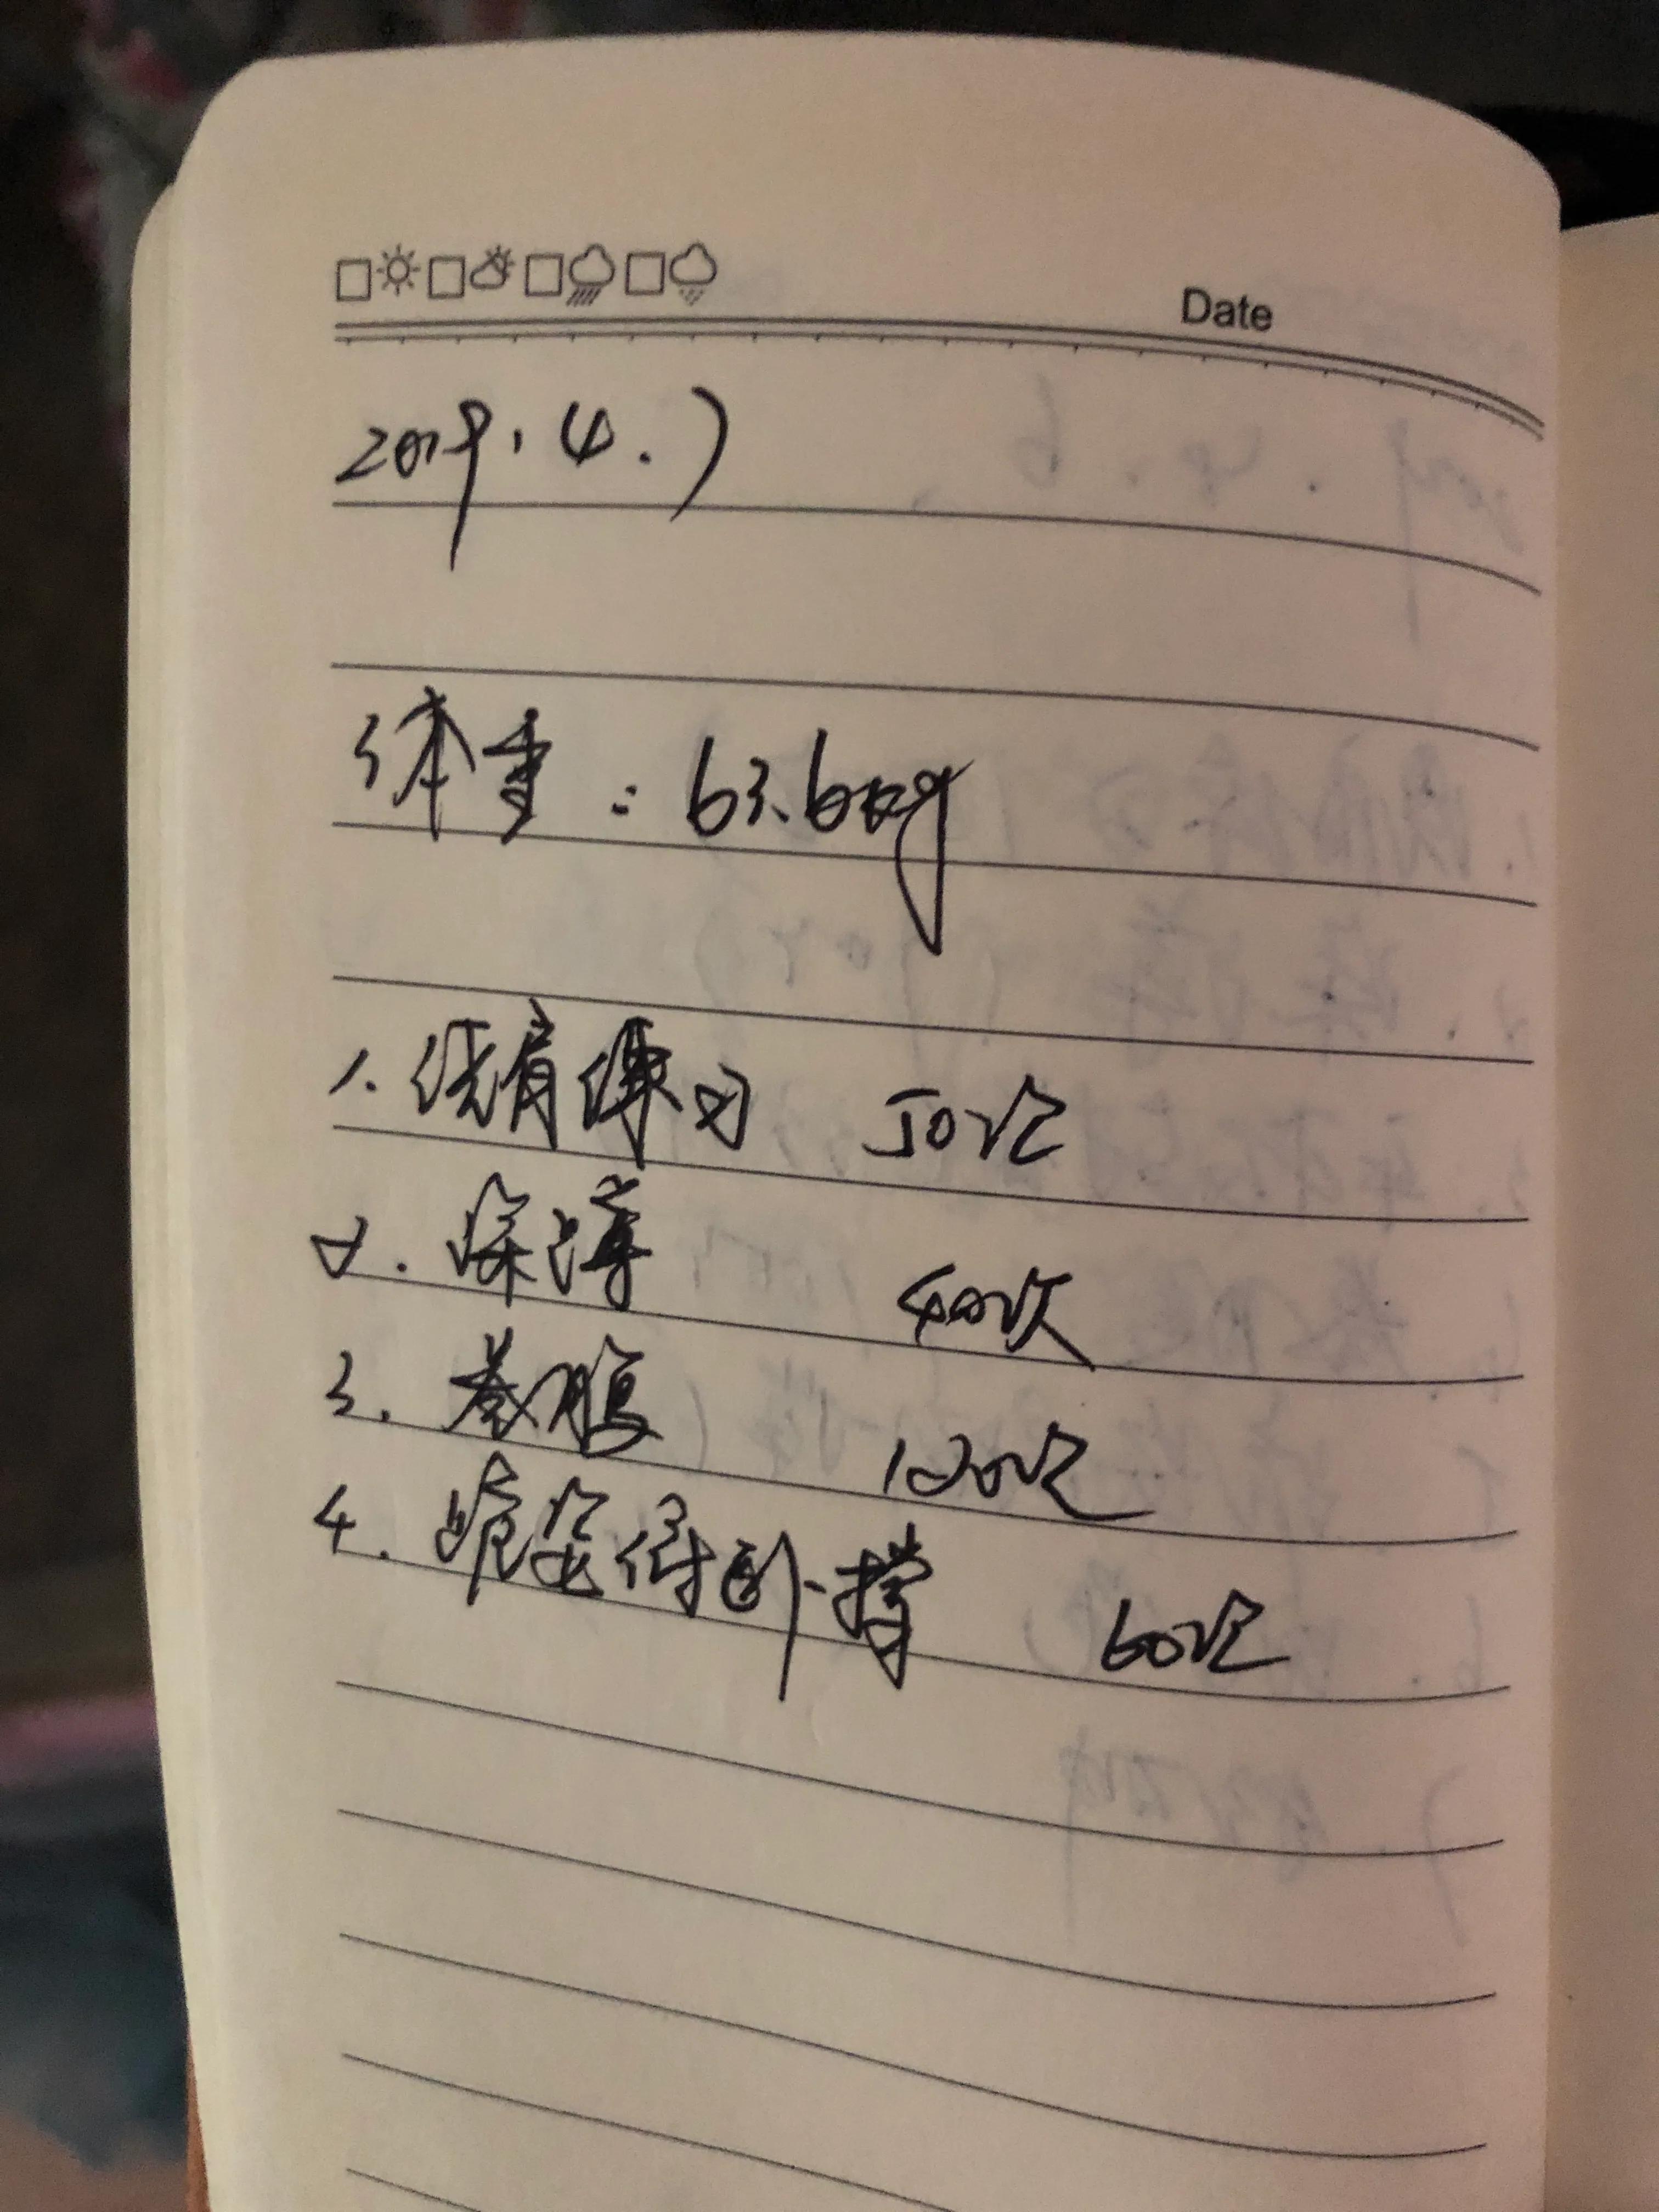 Date
2019.4.7
体重：63.6kg
1. 绕肩练习 50次
2. 深蹲 40次
3. 卷腹 120次
4. 跪姿俯卧撑 60次